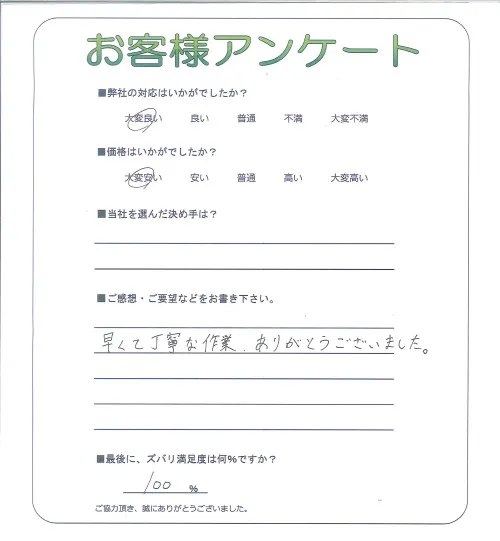 お客様アンケート
■弊社の対応はいかがでしたか？
大変良い 良い 普通 不満 大変不満
■価格はいかがでしたか？
大変安い 安い 普通 高い 大変高い
■当社を選んだ決め手は？
■ご感想・ご要望などをお書き下さい。
早くて丁寧な作業、ありがとうございました。
■最後に、ズバリ満足度は何％ですか？
100 ％
ご協力頂き、誠にありがとうございました。